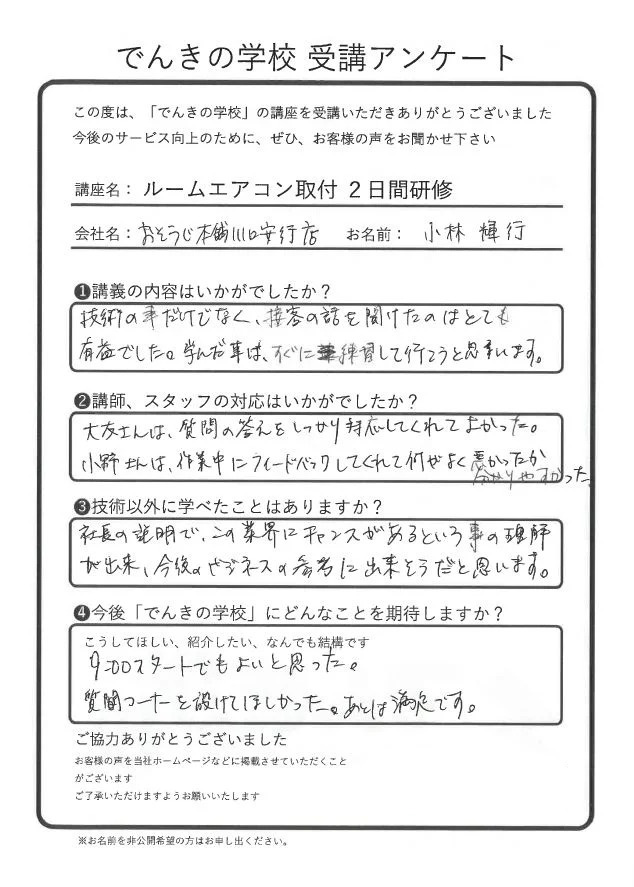 でんきの学校 受講アンケート
この度は、「でんきの学校」の講座を受講いただきありがとうございました
今後のサービス向上のために、ぜひ、お客様の声をお聞かせ下さい
講座名： ルームエアコン取付 ２日間研修
会社名： おそうじ本舗川口安行店 お名前： 小林 輝行
❶講義の内容はいかがでしたか？
技術の事だけでなく、接客の話を聞けたのはとても
有益でした。学んだ事は、すぐに練習して行こうと思います。
❷講師、スタッフの対応はいかがでしたか？
大友さんは、質問の答えをしっかり対応してくれてよかった。
小野さんは、作業中にフィードバックしてくれて何がよく悪かったか
分かりやすかった。
❸技術以外に学べたことはありますか？
社長の説明で、この業界にチャンスがあるという事の理解
が出来、今後のビジネスの参考に出来そうだと思います。
❹今後「でんきの学校」にどんなことを期待しますか？
こうしてほしい、紹介したい、なんでも結構です
9:00スタートでもよいと思った。
質問コーナーを設けてほしかった。あとは満足です。
ご協力ありがとうございました
お客様の声を当社ホームページなどに掲載させていただくこと
がございます
ご了承いただけますようお願いいたします
※お名前を非公開希望の方はお申し出ください。